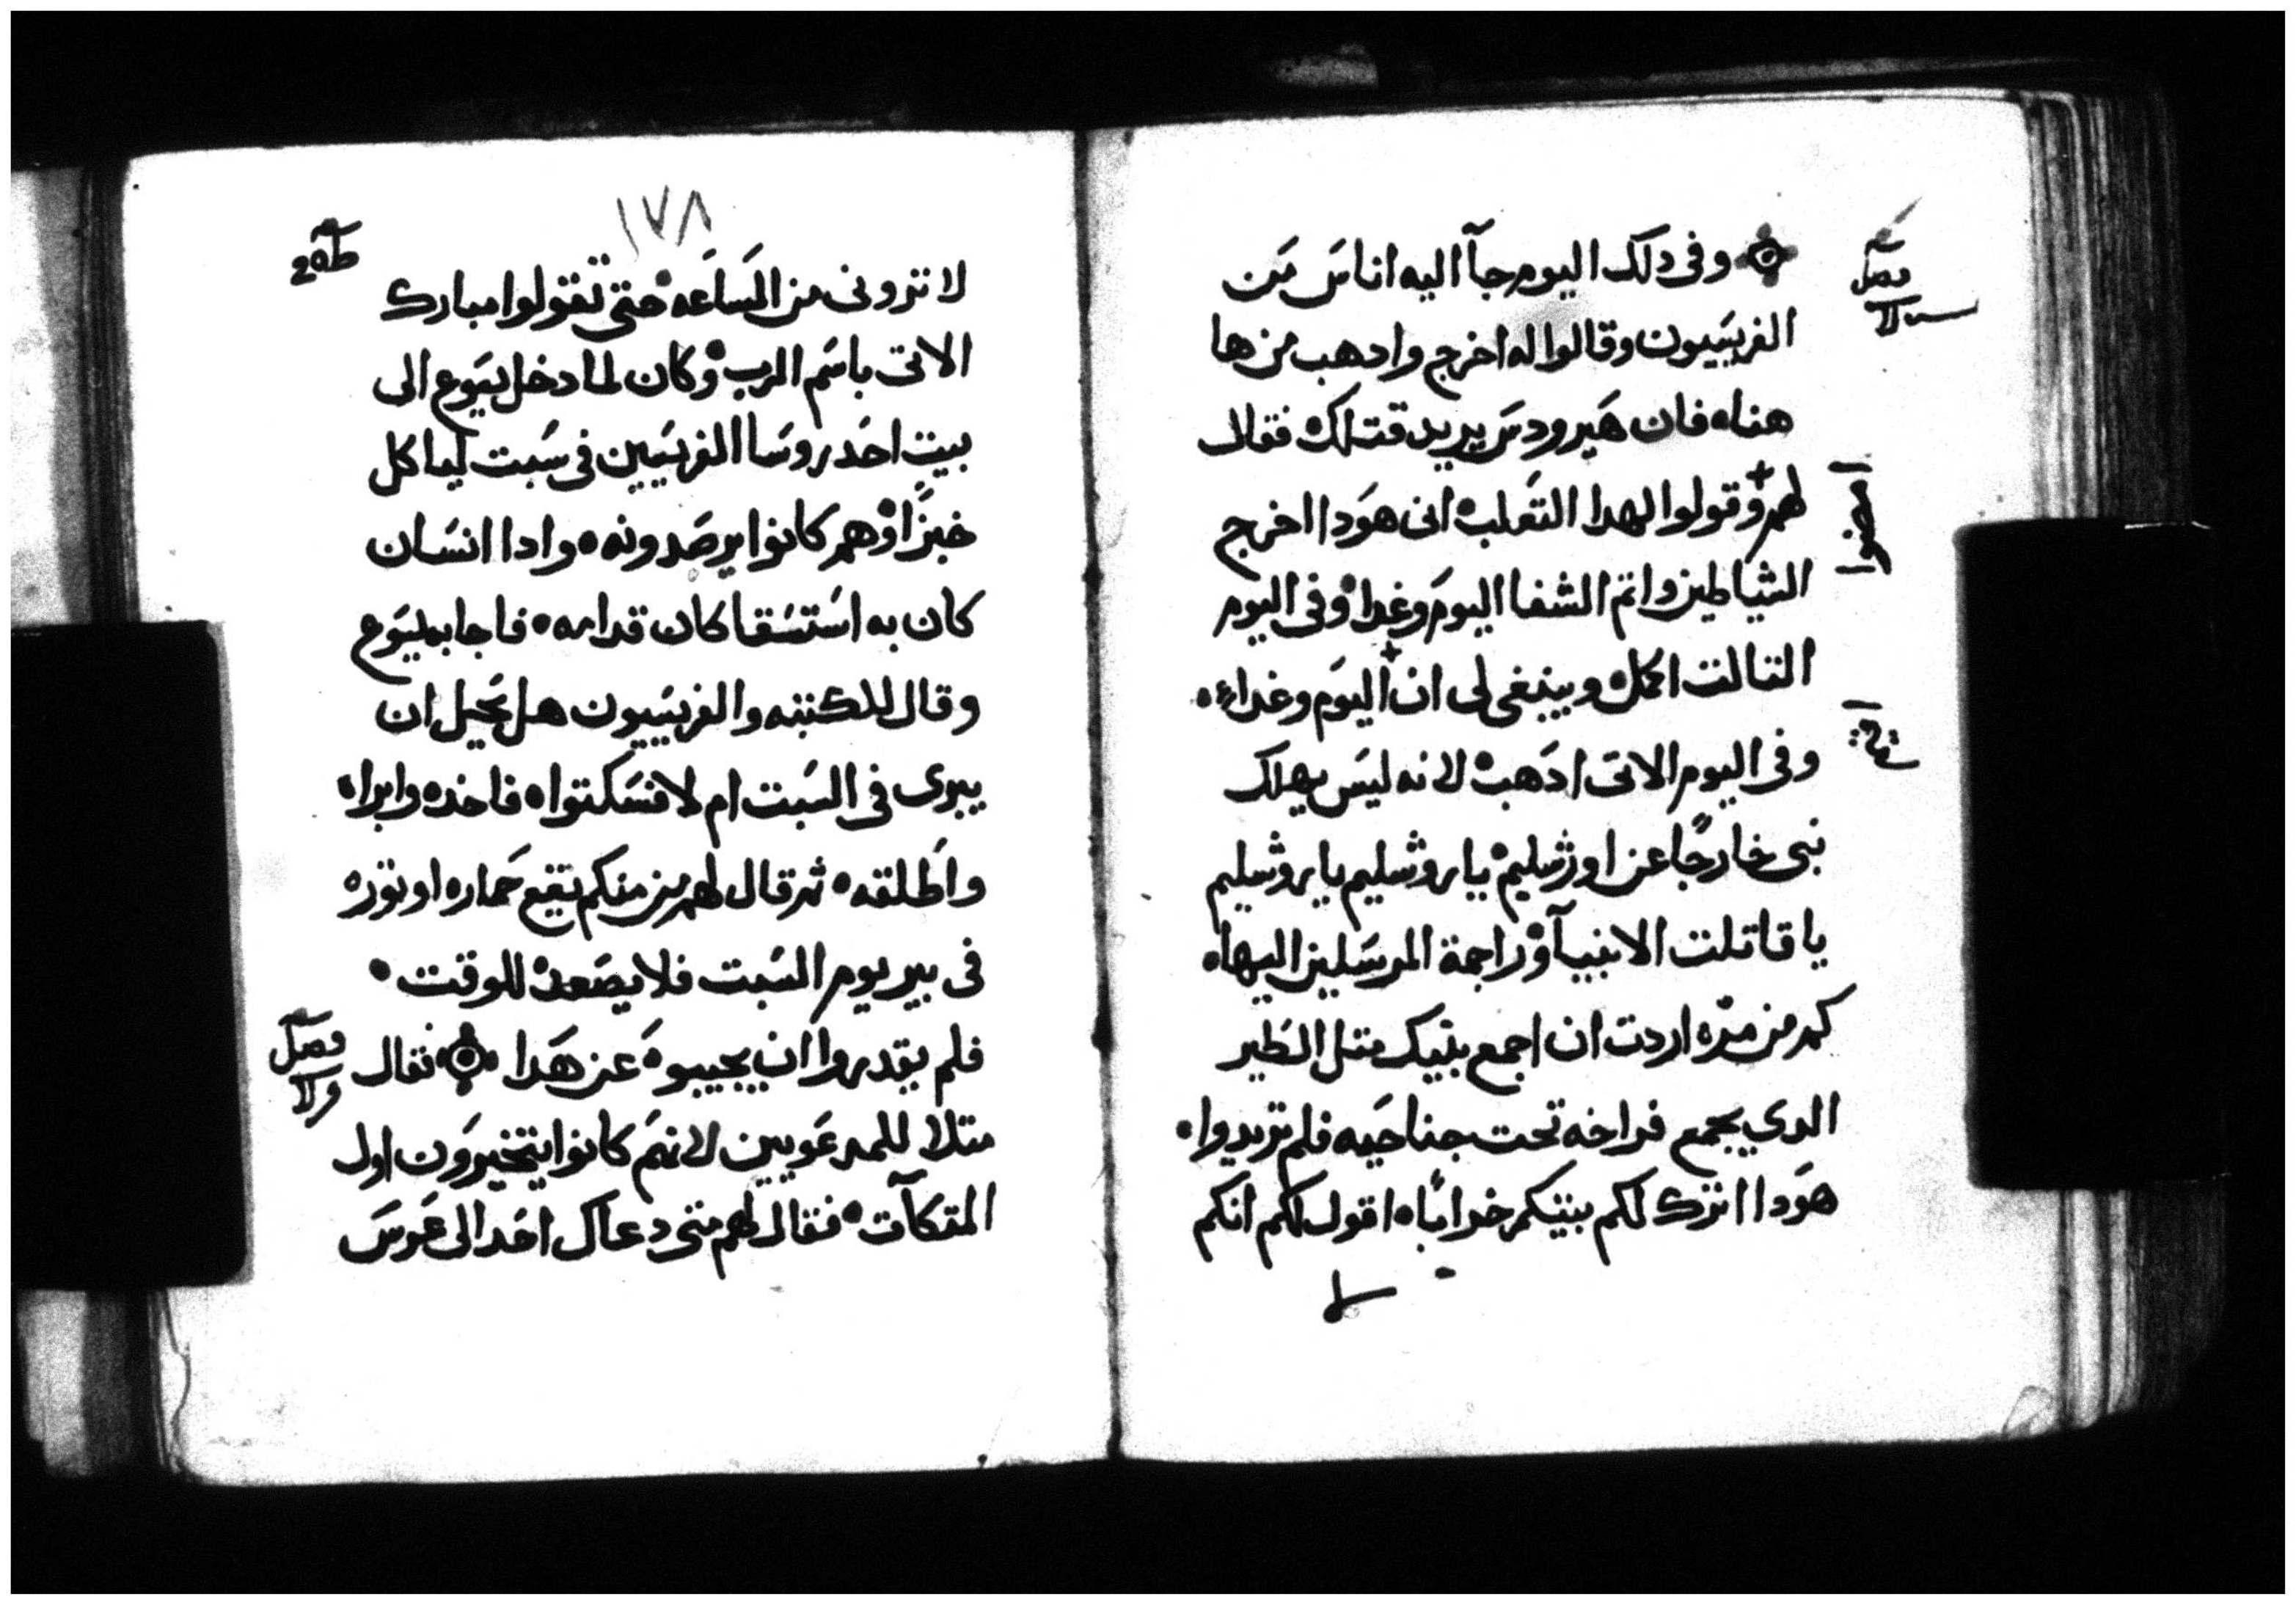 وفى دلك اليوم جآ اليه اناس من
فصل
الفريسيون وقالوا له اخرج وادهب من ها
هناه فان هيرودس يريد قتلك فقال
لهم وقولوا لهدا التعلب انى هودا اخرج
امضوا
الشياطين واتم الشفا اليوم وغدا وفى اليوم
التالت اكمل وينبغى لى ان اليوم وغداء
وفى اليوم الاتى ادهب لانه ليس يهلك
نبى خارجًا عن اورشليم يايروشليم يايروشليم
ياقاتلت الانبيآ وراجمة المرسلين اليها
كم من مره اردت ان اجمع بنيك متل الطير
الدي يجمع فراخه تحت جناحيه فلم تريدوا
هودا اترك لكم بيتكم خرابًا اقول لكم انكم
١٧٨
لا ترونى من الساعه حتى تقولوا مبارك
الاتى باسم الرب وكان لما دخل يسوع الى
بيت احد روسا الفريسيين فى سبت لياكل
خبزًا وهم كانوا يرصدونه وادا انسان
كان به استسقا كان قدامه فاجاب يسوع
وقال للكتبه والفريسيون هل يحل ان
يبرى فى السبت ام لا فسكتوا فاخده وابراه
واطلقه ثم قال لهم من منكم يقع حماره او توره
فى بير يوم السبت فلا يصعده للوقت
فلم يقدروا ان يجيبوه عن هدا فقال
فصل
متلا للمدعويين لانهم كانوا يتخيرون اول
المتكآت فقال لهم متى دعاك احد الى عرس